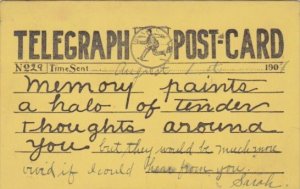 TELEGRAPH POST-CARD
No 29 Time Sent August 1 st 190
Memory paints
a halo of tender
thoughts around
you but they would be much more
vivid if I could hear from you.
Sarah